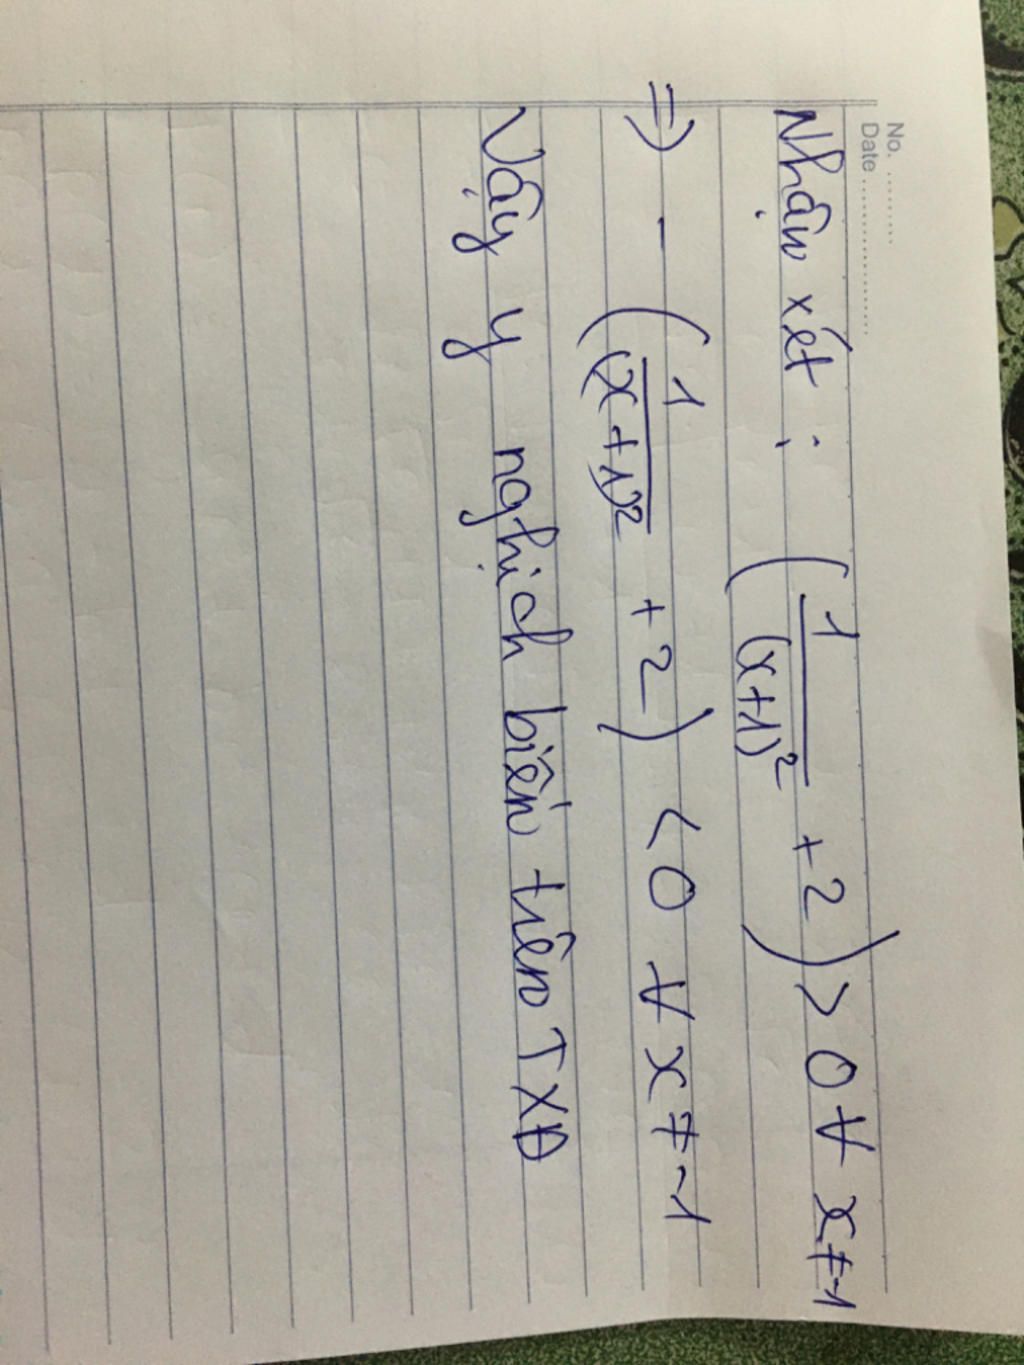 No. ..........
Date ....................
Nhận xét : (1/(x+1)² + 2) > 0 ∀ x ≠ -1
=> - (1/(x+1)² + 2) < 0 ∀ x ≠ -1
Vậy y nghịch biến trên TXĐ